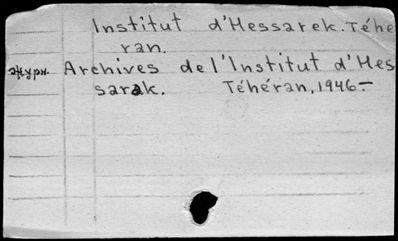 Institut d'Hessarek. Téhé
ran.
журн. Archives de l'Institut d'Hes
sarak. Téhéran, 1946 –